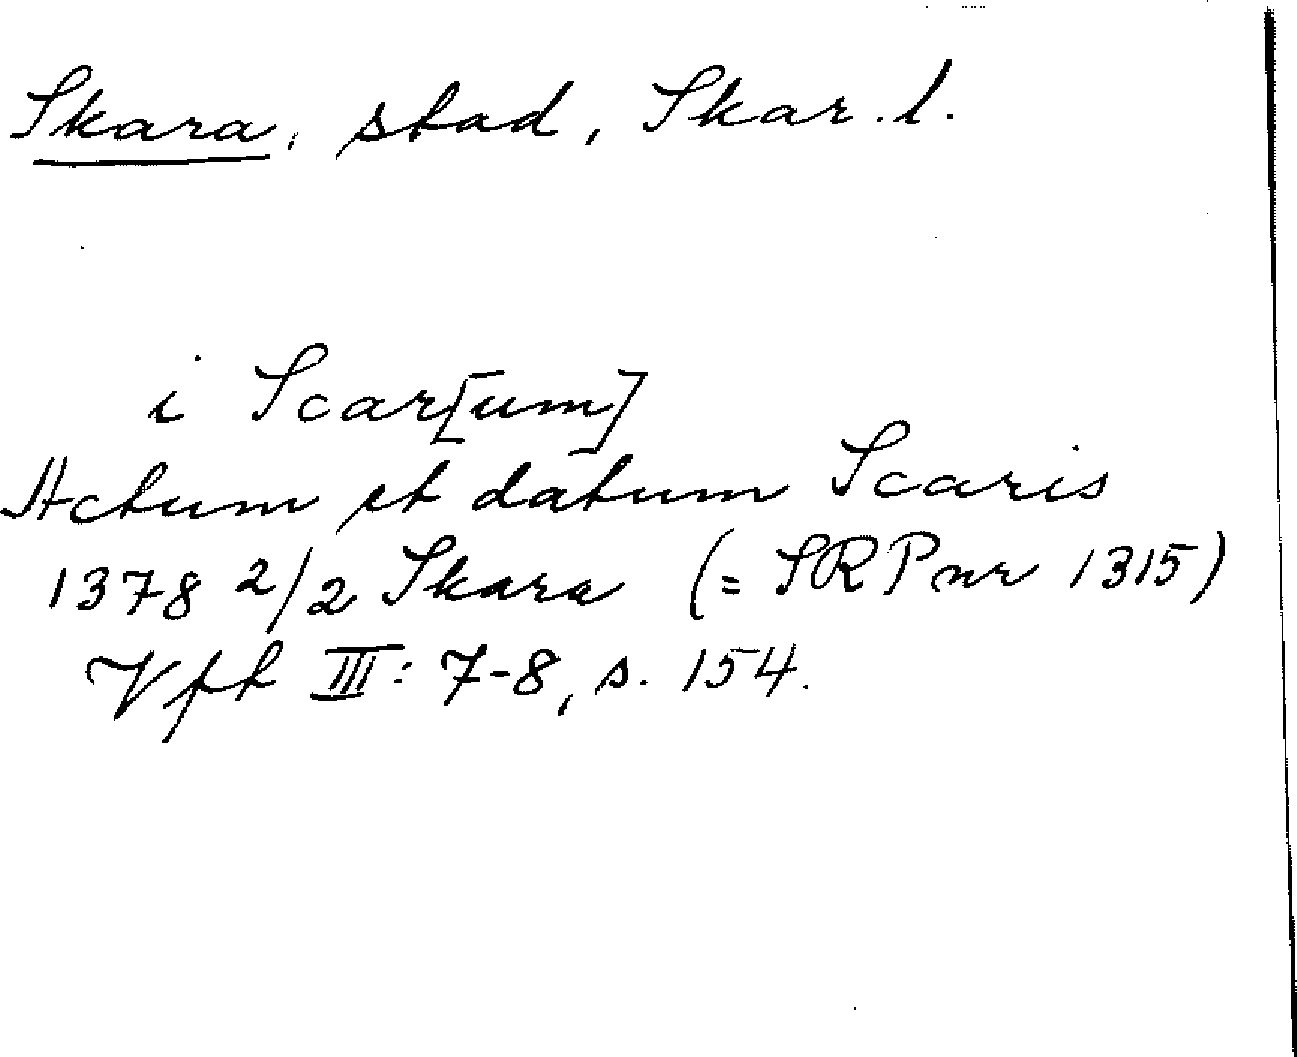 Skara, stad, Skar. l.
i Scar[um]
Actum et datum Scaris
1378 2/2 Skara (= SRP nr 1315)
Vft III: 7-8, s. 154.